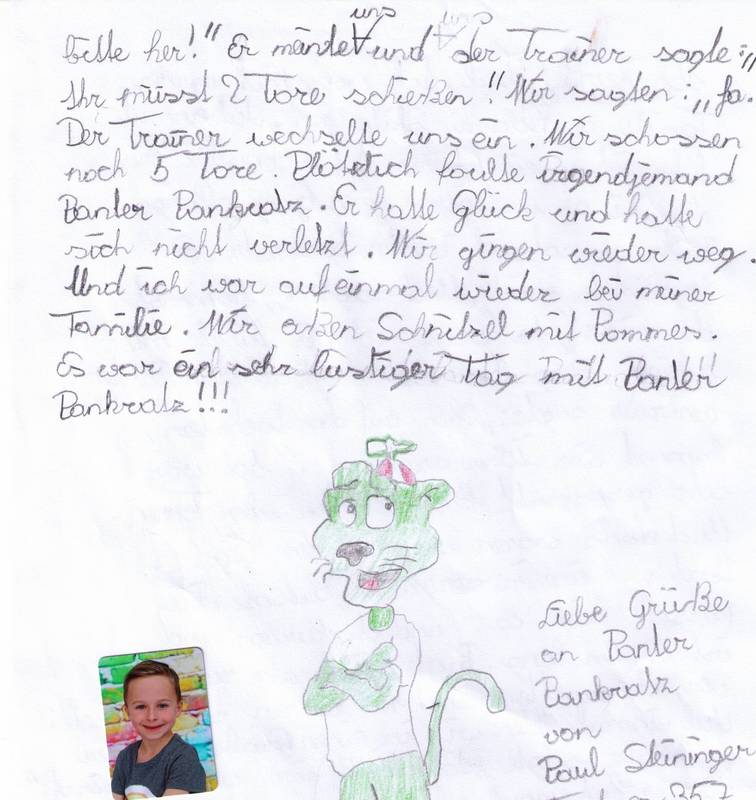 uns
bitte her!" Er meinte und der Trainer sagte: „
Ihr müsst 2 Tore schießen!" Wir sagten: „Ja.
Der Trainer wechselte uns ein. Wir schossen
noch 5 Tore. Plötzlich foulte irgendjemand
Panter Pankratz. Er hatte Glück und hatte
sich nicht verletzt. Wir gingen wieder weg.
Und ich war auf einmal wieder bei meiner
Familie. Wir aßen Schnitzel mit Pommes.
Es war ein sehr lustiger Tag mit Panter
Pankratz!!!
Liebe Grüße
an Panter
Pankratz
von
Paul Steininger